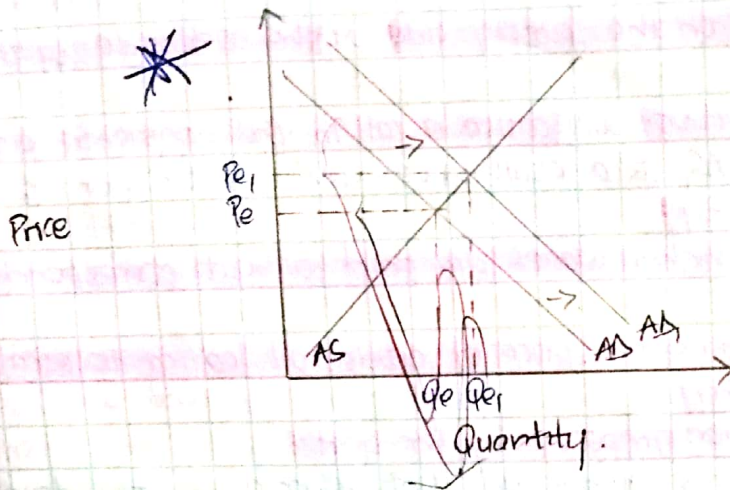 Pe₁
Pe
Price
AS
AD
AD₁
Qe Qe₁
Quantity